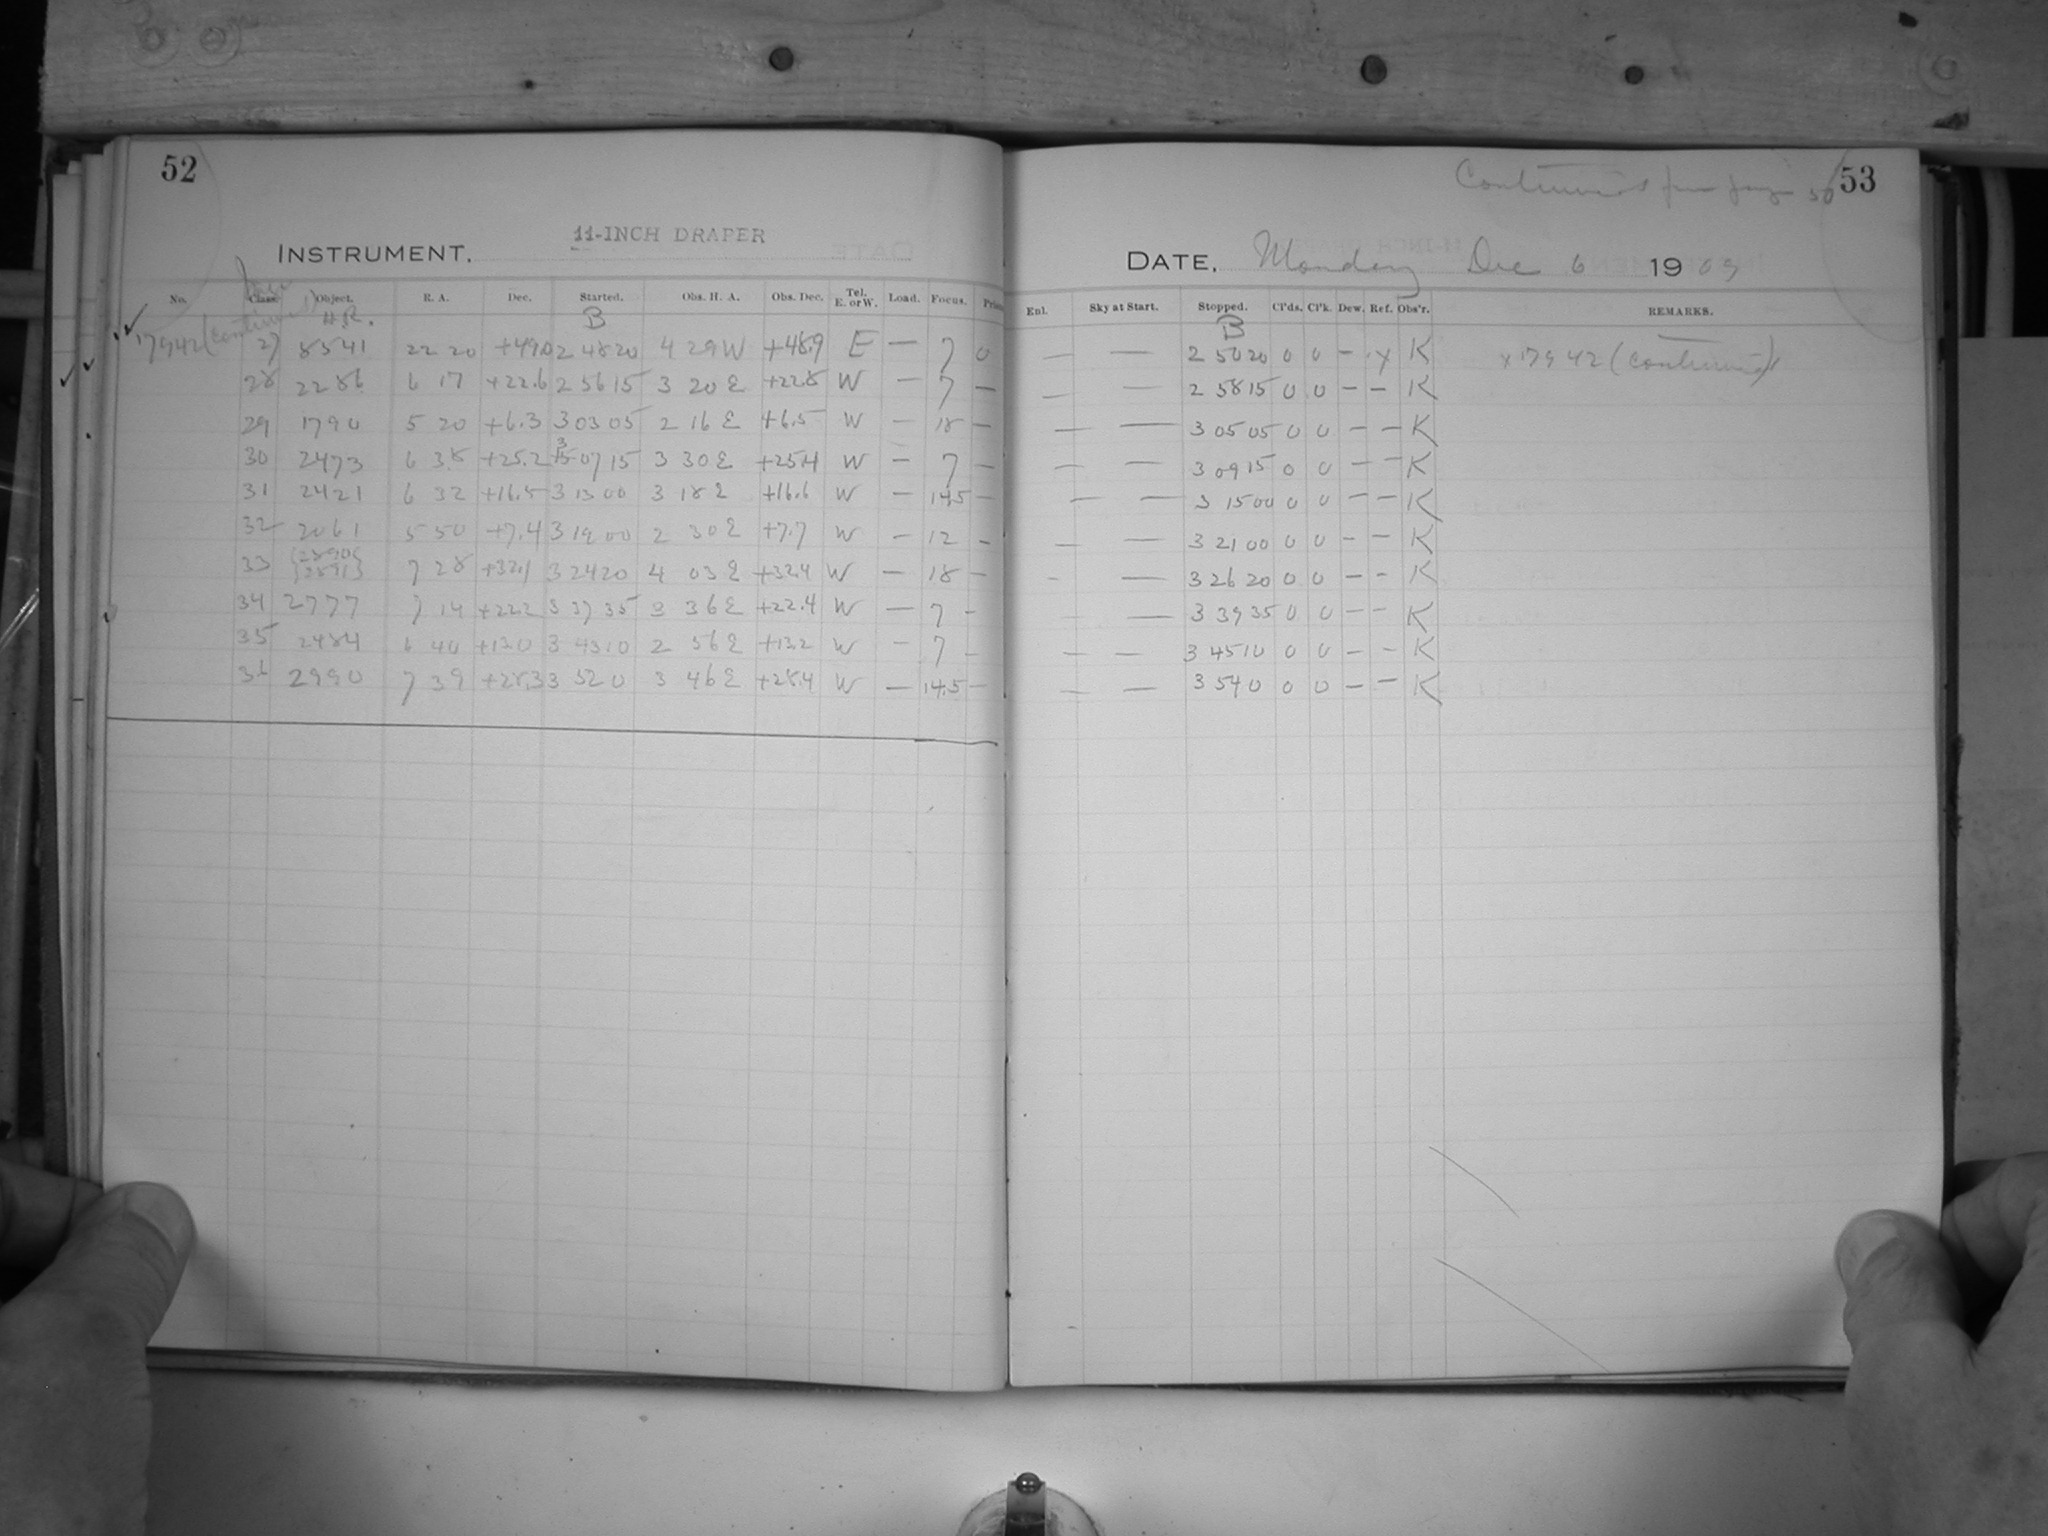 52
INSTRUMENT. 11-INCH DRAPER
No. Class. Object. R. A. Dec. Started. Obs. H. A. Obs. Dec. Tel. E. or W. Load. Focus.
H.R. B
17942 (continued) 27 8541 22 20 +49.0 2 48 20 4 29 W +48.9 E — 7 0
28 2286 6 17 +22.6 2 56 15 3 20 E +22.8 W — 7 —
29 1790 5 20 +6.3 3 03 05 2 16 E +6.5 W — 18 —
30 2473 6 38 +25.2 3 07 15 3 30 E +25.4 W — 7 —
31 2421 6 32 +16.5 3 13 00 3 18 E +16.6 W — 14.5 —
32 2061 5 50 +7.4 3 19 00 2 30 E +7.7 W — 12 —
33 {2890} {2891} 7 28 +32.1 3 24 20 4 03 E +32.4 W — 18 —
34 2777 7 14 +22.2 3 37 35 3 36 E +22.4 W — 7 -
35 2484 6 40 +13.0 3 43 10 2 56 E +13.2 W — 7 —
36 2990 7 39 +28.3 3 52 0 3 46 E +28.4 W — 14.5 —
Continued from page 50 53
DATE. Monday Dec 6 1909
Enl. Sky at Start. Stopped. Cl'ds. Cl'k. Dew. Ref. Obs'r. REMARKS.
B
— — 2 50 20 0 0 - x K x 17942 (continued)
— — 2 58 15 0 0 — — K
— — 3 05 05 0 0 — — K
— — 3 09 15 0 0 — — K
— — 3 15 00 0 0 — — K
— — 3 21 00 0 0 — — K
- — 3 26 20 0 0 — - K
— 3 39 35 0 0 — — K
— — 3 45 10 0 0 — - K
— — 3 54 0 0 0 — — K